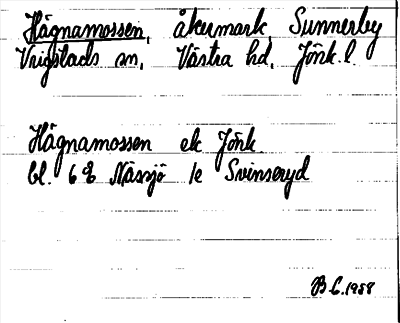 Hägnamossen, åkermark, Sunnerby
Vrigstads sn, Västra hd, Jönk. l.
Hägnamossen ek Jönk
bl. 6 E Nässjö 1e Svinseryd
B C. 1988